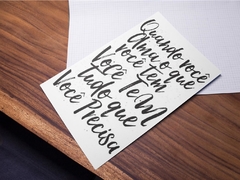 Quando você
Ama o que
você tem
Você TeM
Tudo que
Você Precisa